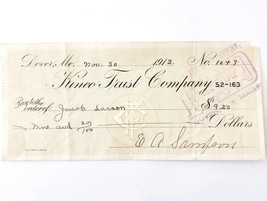 Dover, Me. Nov. 30 1912 No. 1047
Kineo Trust Company 52-163
Pay to the
order of Jacob Larson $9.20
Nine and 20/100 Dollars
E A Simpson